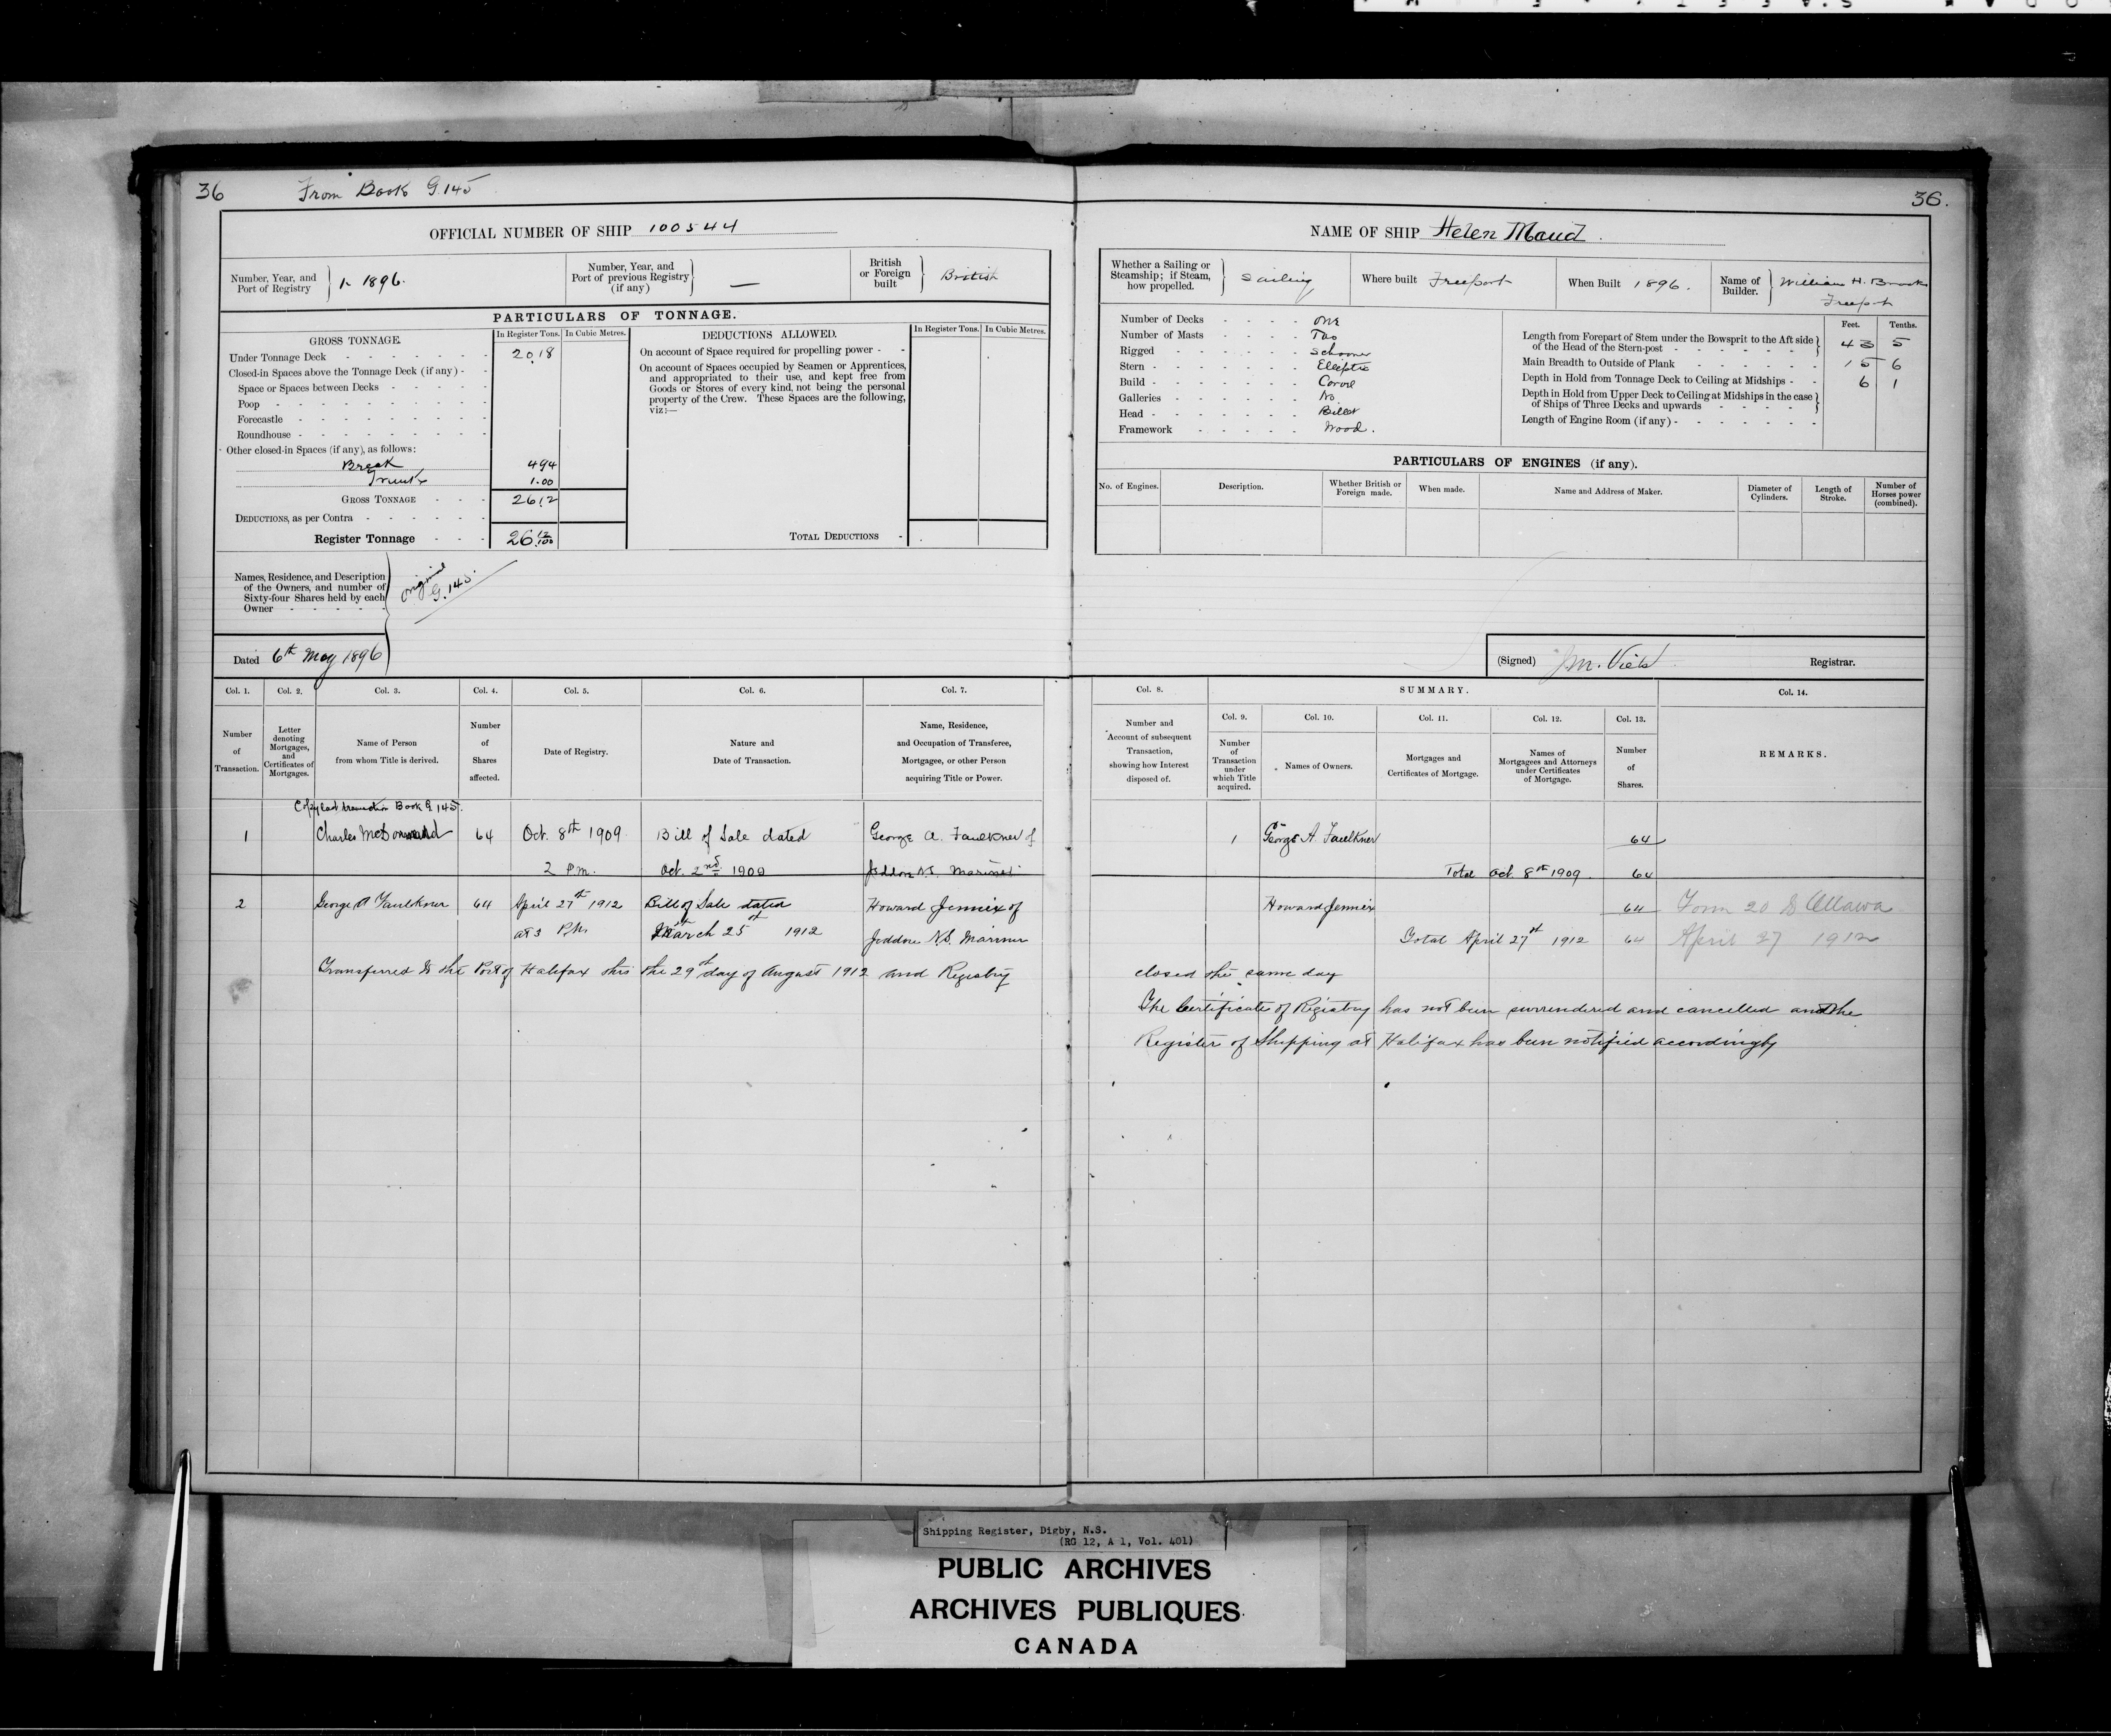 36 From Book G.145
36.
OFFICIAL NUMBER OF SHIP 100544
NAME OF SHIP Helen Maud.
Number, Year, and Port of Registry } 1- 1896.
Number, Year, and Port of previous Registry (if any) } —
British or Foreign built } British
Whether a Sailing or Steamship; if Steam, how propelled. } Sailing
Where built Freeport
When Built 1896.
Name of Builder. } William H. Brooks Freeport
PARTICULARS OF TONNAGE.
GROSS TONNAGE.
In Register Tons. In Cubic Metres.
DEDUCTIONS ALLOWED.
In Register Tons. In Cubic Metres.
Under Tonnage Deck - 20.18
Closed-in Spaces above the Tonnage Deck (if any) -
Space or Spaces between Decks -
Poop -
Forecastle -
Roundhouse -
Other closed-in Spaces (if any), as follows:
Break 4.94
Trunk 1.00
GROSS TONNAGE - 26.12
DEDUCTIONS, as per Contra -
Register Tonnage - 26 12/100
On account of Space required for propelling power -
On account of Spaces occupied by Seamen or Apprentices,
and appropriated to their use, and kept free from
Goods or Stores of every kind, not being the personal
property of the Crew. These Spaces are the following,
viz:—
TOTAL DEDUCTIONS -
Number of Decks - One
Number of Masts - Two
Rigged - Schooner
Stern - Eliptic
Build - Carvel
Galleries - No
Head - Billet
Framework - Wood.
Feet. Tenths.
Length from Forepart of Stem under the Bowsprit to the Aft side of the Head of the Stern-post - 43 5
Main Breadth to Outside of Plank - 15 6
Depth in Hold from Tonnage Deck to Ceiling at Midships - 6 1
Depth in Hold from Upper Deck to Ceiling at Midships in the case of Ships of Three Decks and upwards -
Length of Engine Room (if any) -
PARTICULARS OF ENGINES (if any).
No. of Engines. Description. Whether British or Foreign made. When made. Name and Address of Maker. Diameter of Cylinders. Length of Stroke. Number of Horses power (combined).
Names, Residence, and Description
of the Owners, and number of
Sixty-four Shares held by each
Owner -
original G.145.
Dated 6th May 1896
(Signed) Registrar.
Col. 1. Col. 2. Col. 3. Col. 4. Col. 5. Col. 6. Col. 7.
Number of Transaction.
Letter denoting Mortgages, and Certificates of Mortgages.
Name of Person from whom Title is derived.
Number of Shares affected.
Date of Registry.
Nature and Date of Transaction.
Name, Residence, and Occupation of Transferee, Mortgagee, or other Person acquiring Title or Power.
Col. 8. SUMMARY. Col. 14.
Col. 9. Col. 10. Col. 11. Col. 12. Col. 13.
Number and Account of subsequent Transaction, showing how Interest disposed of.
Number of Transaction under which Title acquired.
Names of Owners.
Mortgages and Certificates of Mortgage.
Names of Mortgagees and Attorneys under Certificates of Mortgage.
Number of Shares.
REMARKS.
Copy last transaction Book G 145.
1 Charles McDormand 64 Oct. 8th 1909 Bill of Sale dated George A. Faulkner of
2 P.m. Oct. 2nd 1909 Jeddore N.S. Mariner
1 George A. Faulkner 64
Total Oct. 8th 1909 64
2 George A Faulkner 64 April 27th 1912 Bill of Sale dated Howard Jennix of
at 3 P.M. March 25th 1912 Jeddore N.S. Mariner
Howard Jennix 64 Form 20 to Ottawa
Total April 27th 1912 64 April 27 1912
Transferred to the Port of Halifax this the 29th day of August 1912 and Registry closed the same day
The Certificate of Registry has not been surrendered and cancelled and the
Register of Shipping at Halifax has been notified accordingly
Shipping Register, Digby, N.S.
(RG 12, A 1, Vol. 401)
PUBLIC ARCHIVES
ARCHIVES PUBLIQUES
CANADA